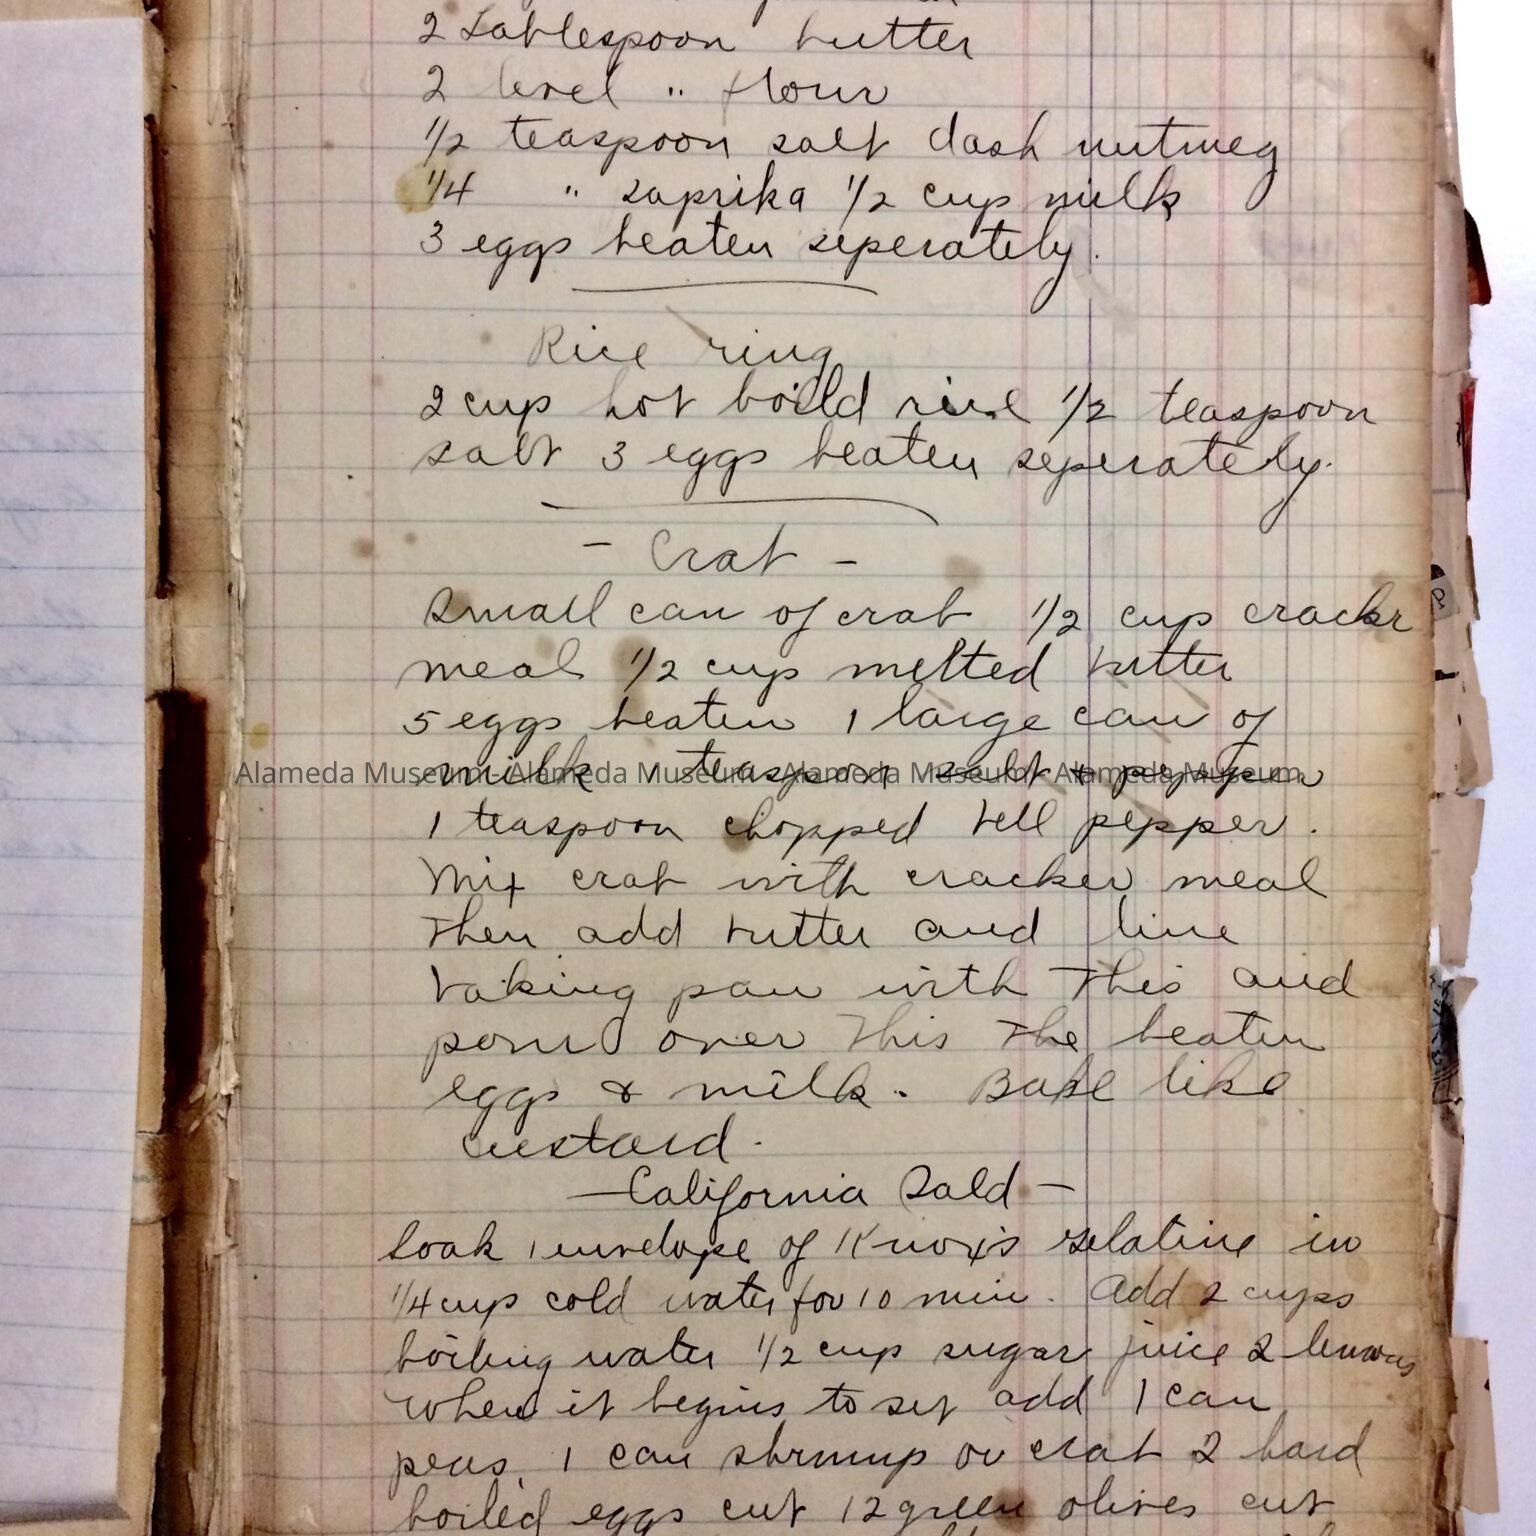 2 tablespoon butter
2 level " flour
1/2 teaspoon salt dash nutmeg
1/4 " paprika 1/2 cup milk
3 eggs beaten seperately.
Rice ring
2 cup hot boild rice 1/2 teaspoon
salt 3 eggs beaten seperately.
- Crab -
Small can of crab 1/2 cup crackr
meal 1/2 cup melted butter
5 eggs beaten 1 large can of
milk 1 teaspoon salt & pepper
Alameda Museum - Alameda Museum - Alameda Museum - Alameda Museum
1 teaspoon chopped bell pepper.
Mix crab with cracker meal
then add butter and line
baking pan with this and
pour over this the beaten
eggs & milk. Bake like
custard.
- California Sald -
Soak 1 envelope of Knox's gelatine in
1/4 cup cold water for 10 min. Add 2 cups
boiling water 1/2 cup sugar juice 2 lemons
When it begins to set add 1 can
peas, 1 can shrimp or crab 2 hard
boiled eggs cut 12 green olives cut